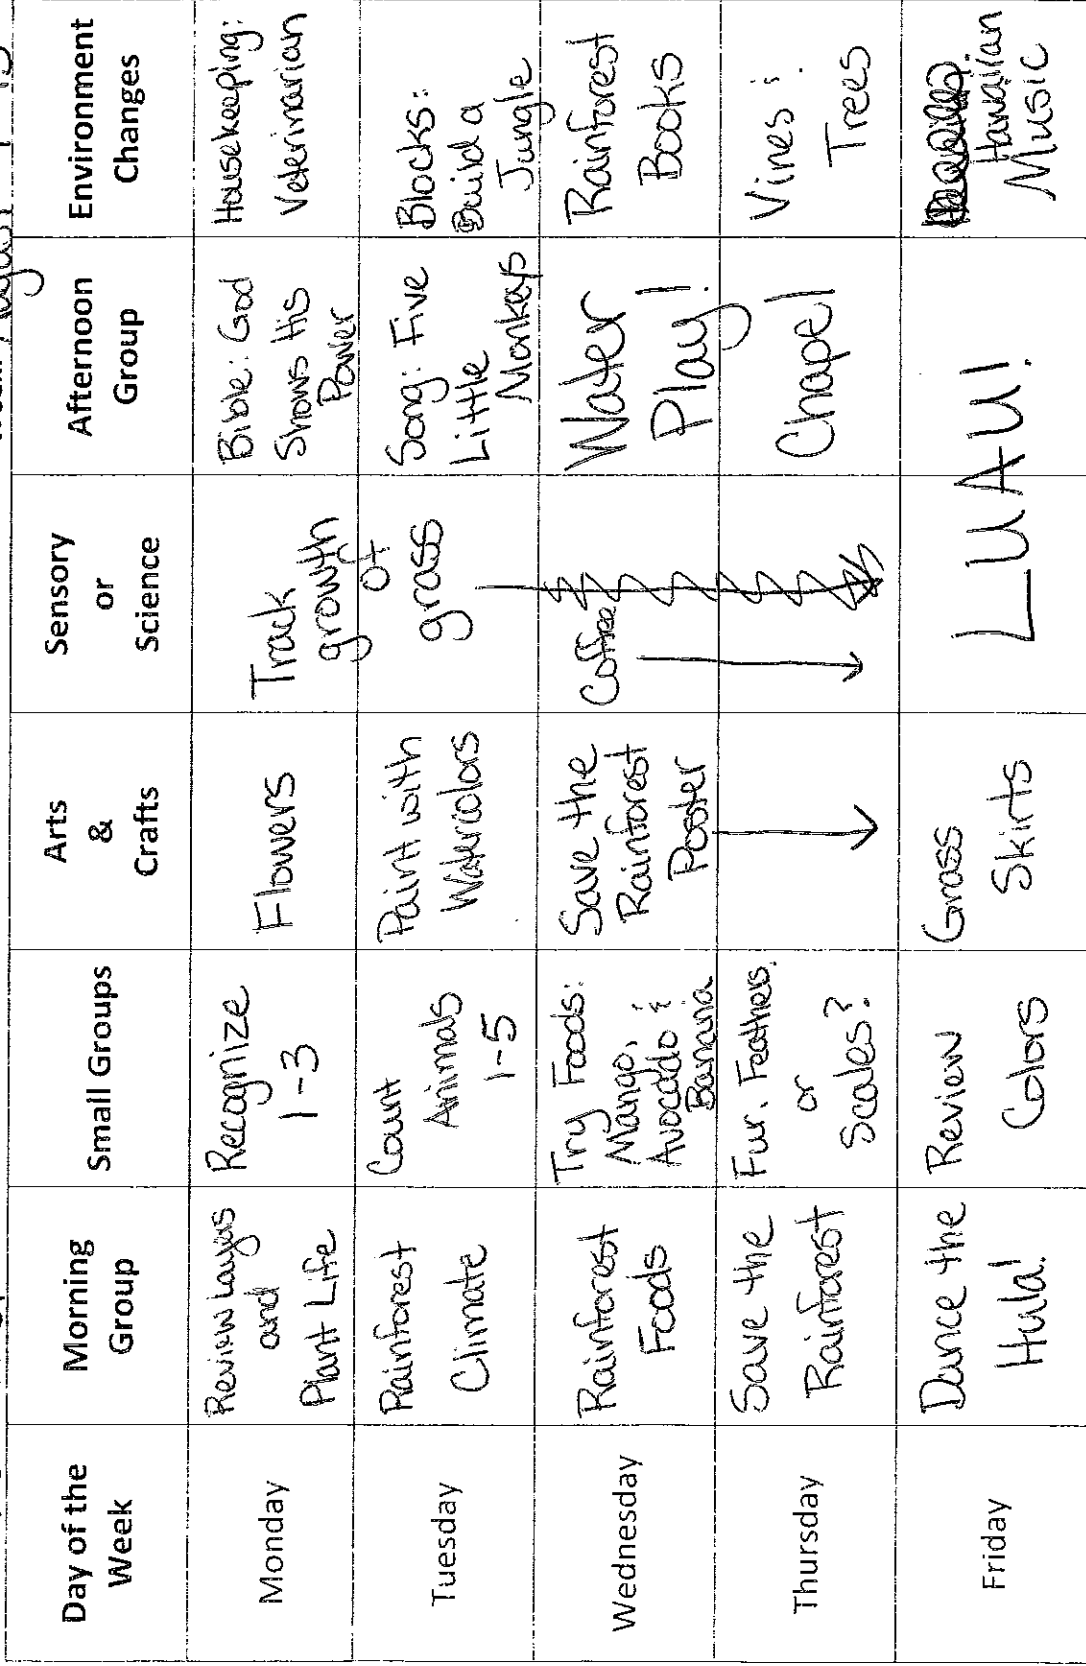 August
Day of the
Week
Morning
Group
Small Groups
Arts
&
Crafts
Sensory
or
Science
Afternoon
Group
Environment
Changes
Monday
Review Layers
and
Plant Life
Recognize
1-3
Flowers
Track
growth
of
grass
Bible: God
Shows His
Power
Housekeeping:
Veterinarian
Tuesday
Rainforest
Climate
Count
Animals
1-5
Paint with
Watercolors
Song: Five
Little
Monkeys
Blocks:
Build a
Jungle
Wednesday
Rainforest
Foods
Try Foods:
Mango,
Avocado &
Banana
Save the
Rainforest
Poster
Coffee
Water
Play!
Rainforest
Books
Thursday
Save the
Rainforest
Fur, Feathers,
or
Scales?
Chapel
Vines &
Trees
Friday
Dance the
Hula!
Review
Colors
Grass
Skirts
LUAU!
Hawaiian
Music